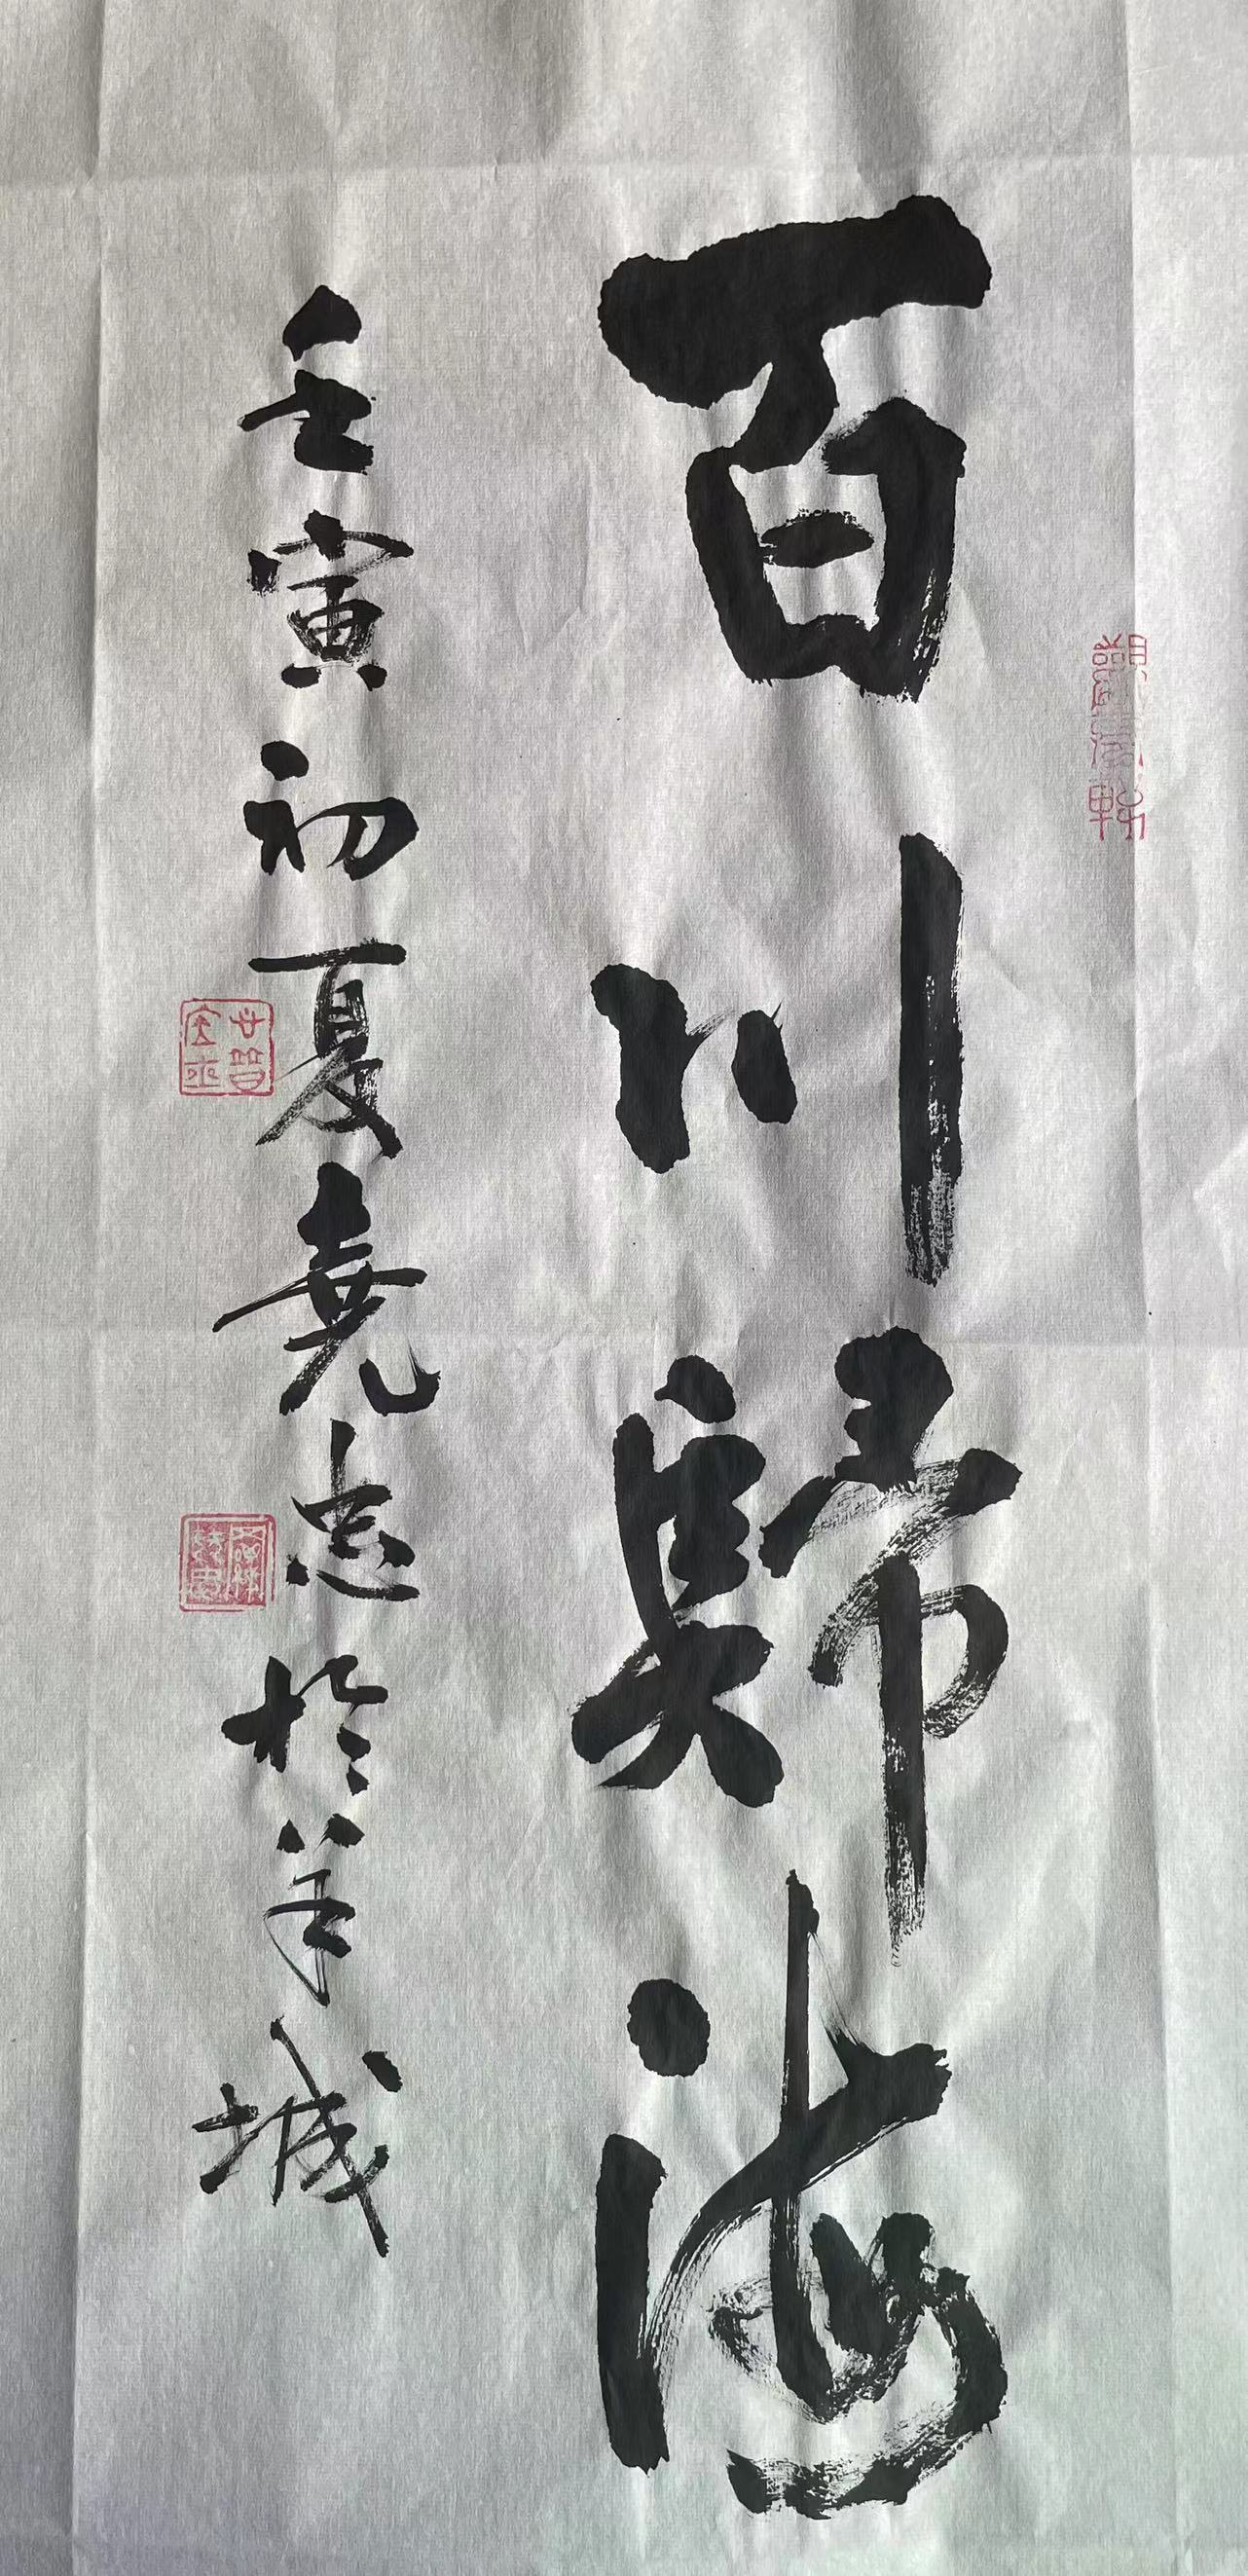 百川歸海
壬寅初夏堯志於羊城